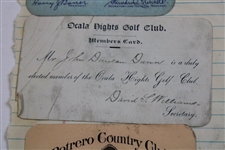 Ocala Hights Golf Club.
Members Card.
Mr. John Duncan Dunn is a duly
elected member of the Ocala Hights Golf Club
David S. Williams
Secretary.
Potrero Country Club